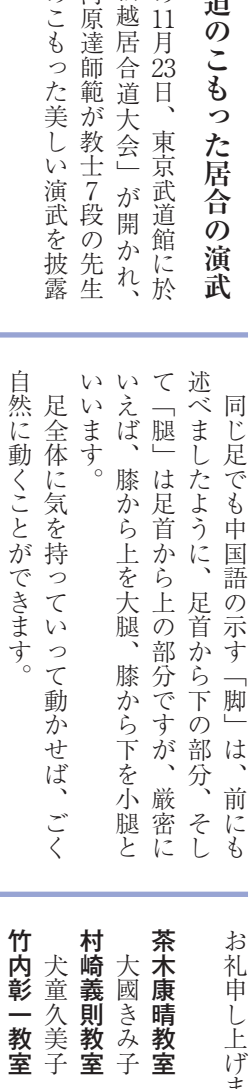 のこもった居合の演武
11月23日、東京武道館に於
越居合道大会」が開かれ、
原達師範が教士7段の先生
こもった美しい演武を披露
同じ足でも中国語の示す「脚」は、前にも
述べましたように、足首から下の部分、そし
て「腿」は足首から上の部分ですが、厳密に
いえば、膝から上を大腿、膝から下を小腿と
いいます。
足全体に気を持っていって動かせば、ごく
自然に動くことができます。
お礼申し上げま
茶木康晴教室
大國きみ子
村崎義則教室
犬童久美子
竹内彰一教室